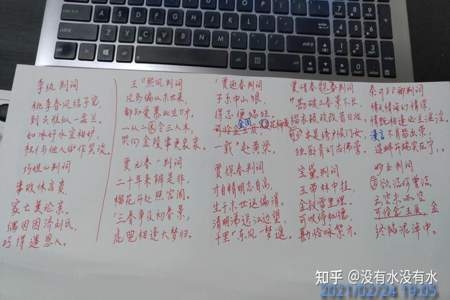 李纨判词
桃李春风结子完,
到头谁似一盆兰
如冰水好空相妒,
枉与他人作笑谈。
巧姐儿判词
事败休言贵,
家亡莫论亲。
偶因济刘氏,
巧得遇恩人。
王熙凤判词
凡鸟偏从末世来,
都知爱慕此生才
一从二令三人木,
哭向金陵事更哀。
贾元春判词
二十年来辨是非,
榴花开处照宫闱。
三春争及初春景,
虎兕相逢大梦归。
贾迎春判词
子系中山狼,
得志便猖狂。
金闺花柳质
一载赴黄粱。
贾探春判词
才自精明志自高,
生于末世运偏消。
清明涕送江边望,
千里东风一梦遥。
贾惜春判词
勘破三春景不长,
缁衣顿改昔日妆
绣户侯门女,
独卧青灯古佛旁。
宝黛判词
玉带林中挂,
金簪雪里埋。
可叹停机德,
堪怜咏絮才。
秦可卿判词
情天情海幻情深,
情既相逢必主淫。
漫言不肖皆荣出,
造衅开端实在宁。
妙玉判词
欲洁何曾洁,
云空未必空
可怜金玉质,
终陷淖泥中。
知乎 @没有水没有水
2021/02/24 19:05